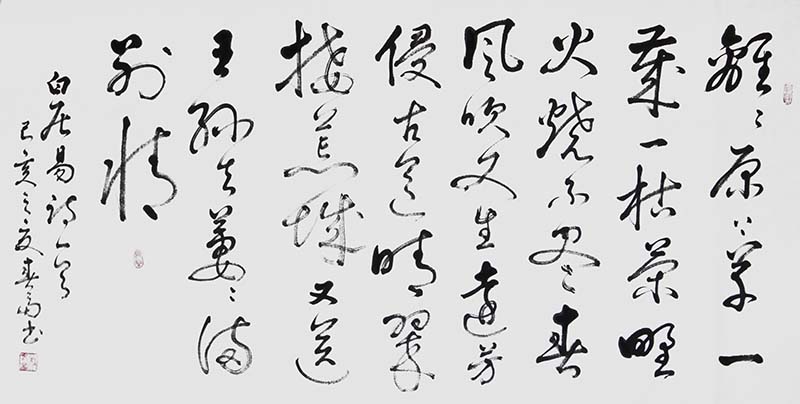 離々原上草一
歲一枯榮野
火燒不盡春
風吹又生遠芳
侵古道晴翠
接荒城又送
王孫去萋々滿
別情
白居易詩一首
己亥之夏春书